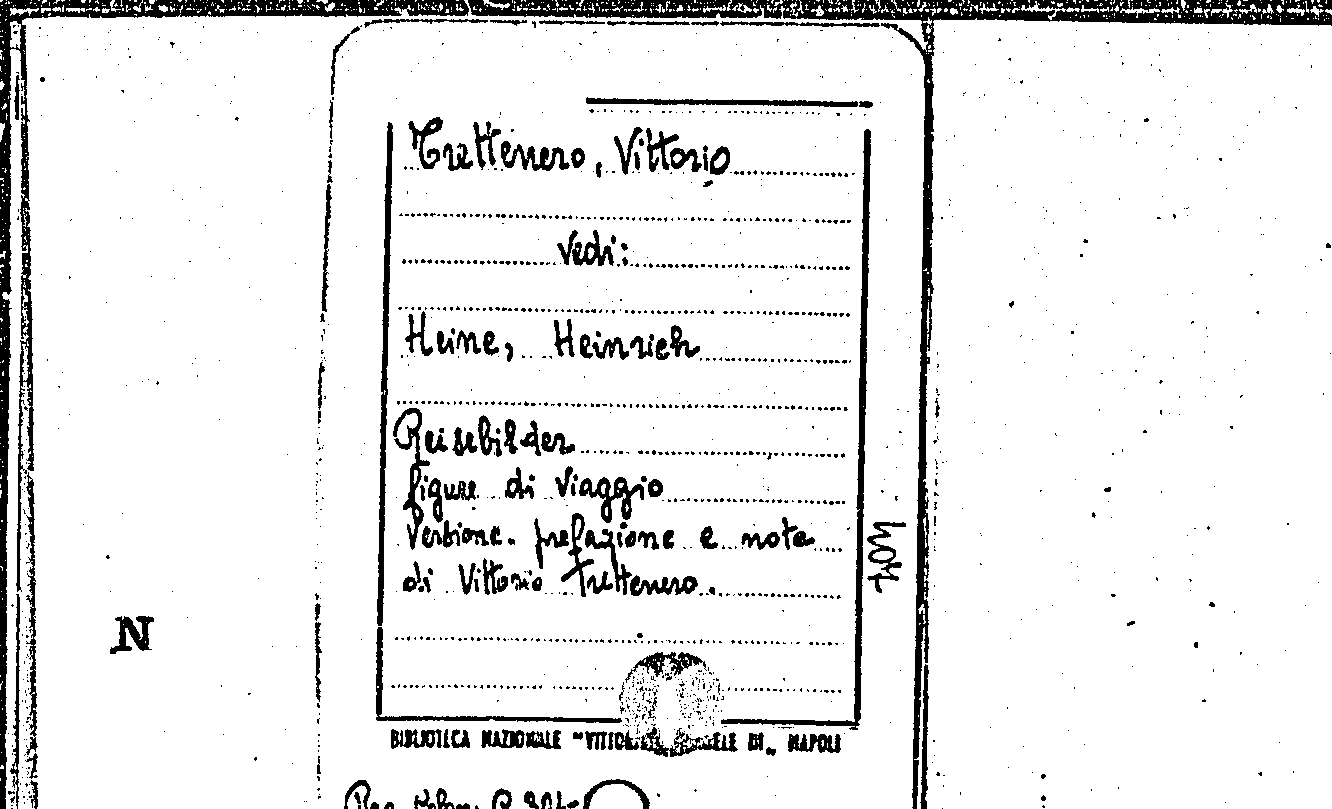 Trettenero, Vittorio
vedi:
Heine, Heinrich
Reisebilder
figure di viaggio
Versione. prefazione e note
di Vittorio Trettenero.
N
BIBLIOTECA NAZIONALE "VITTORIO EMANUELE III„ NAPOLI